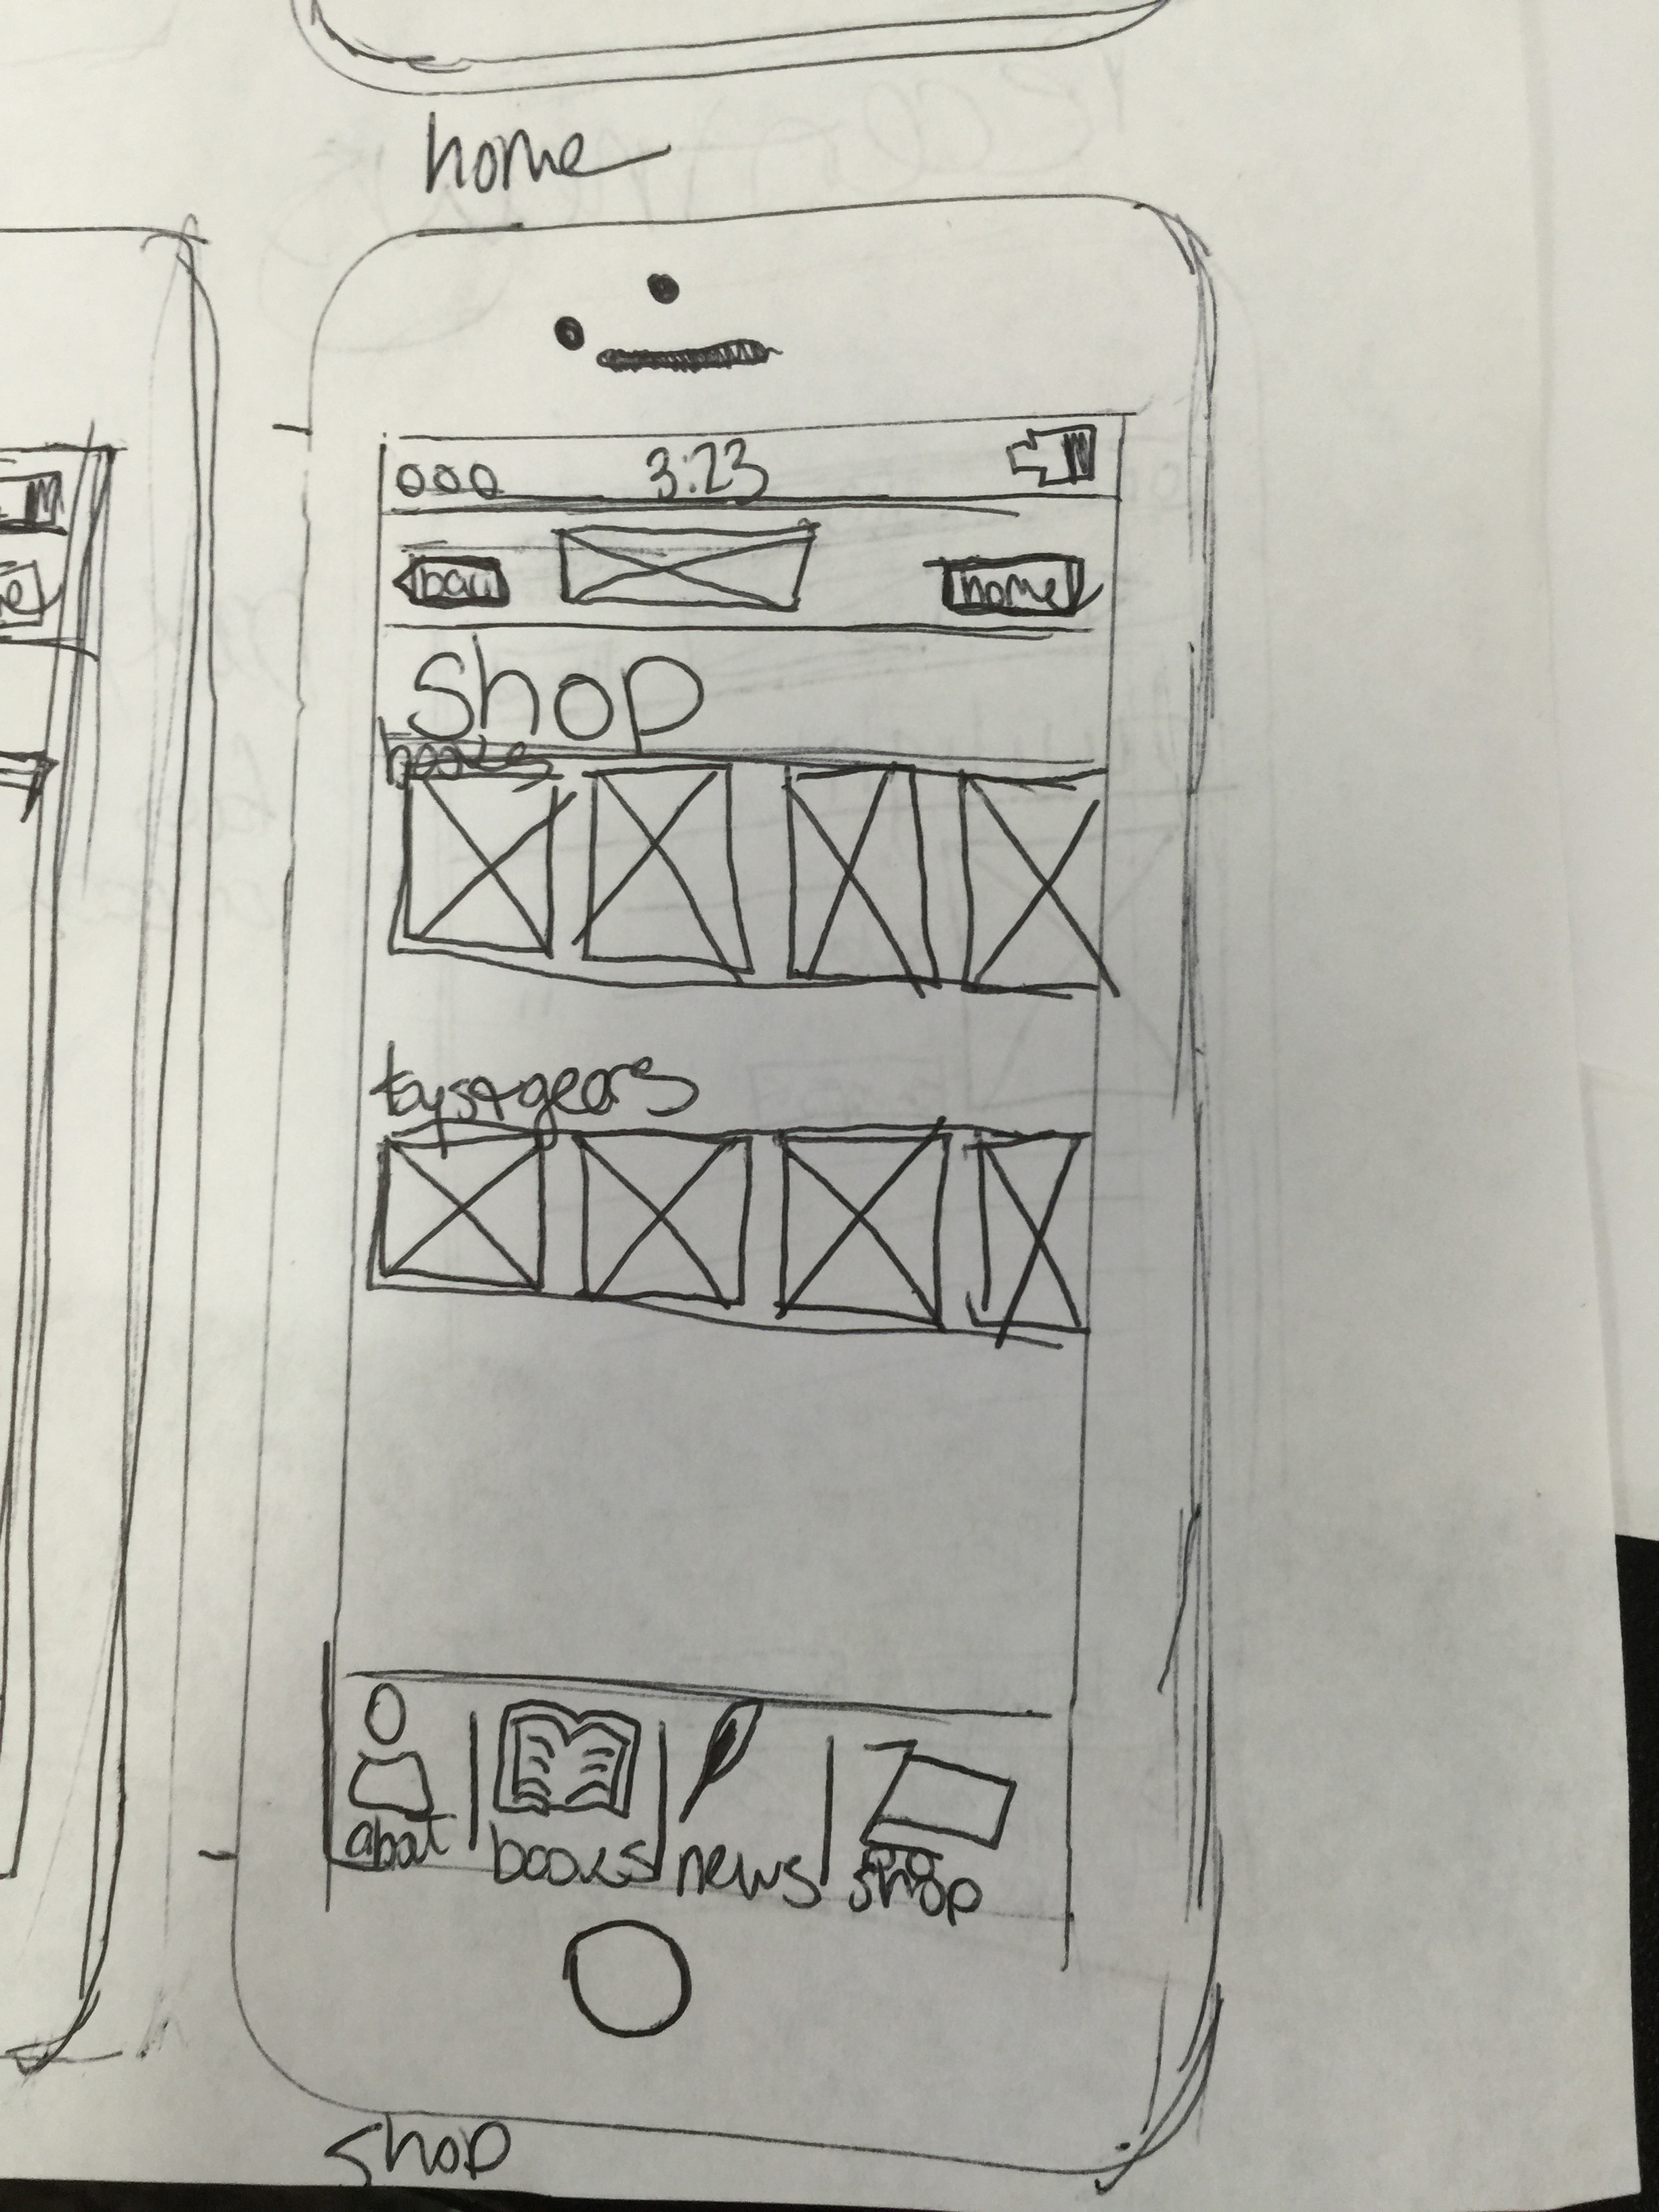 home
3:23
back
home
shop
books
toys+gears
about
books
news
shop
shop